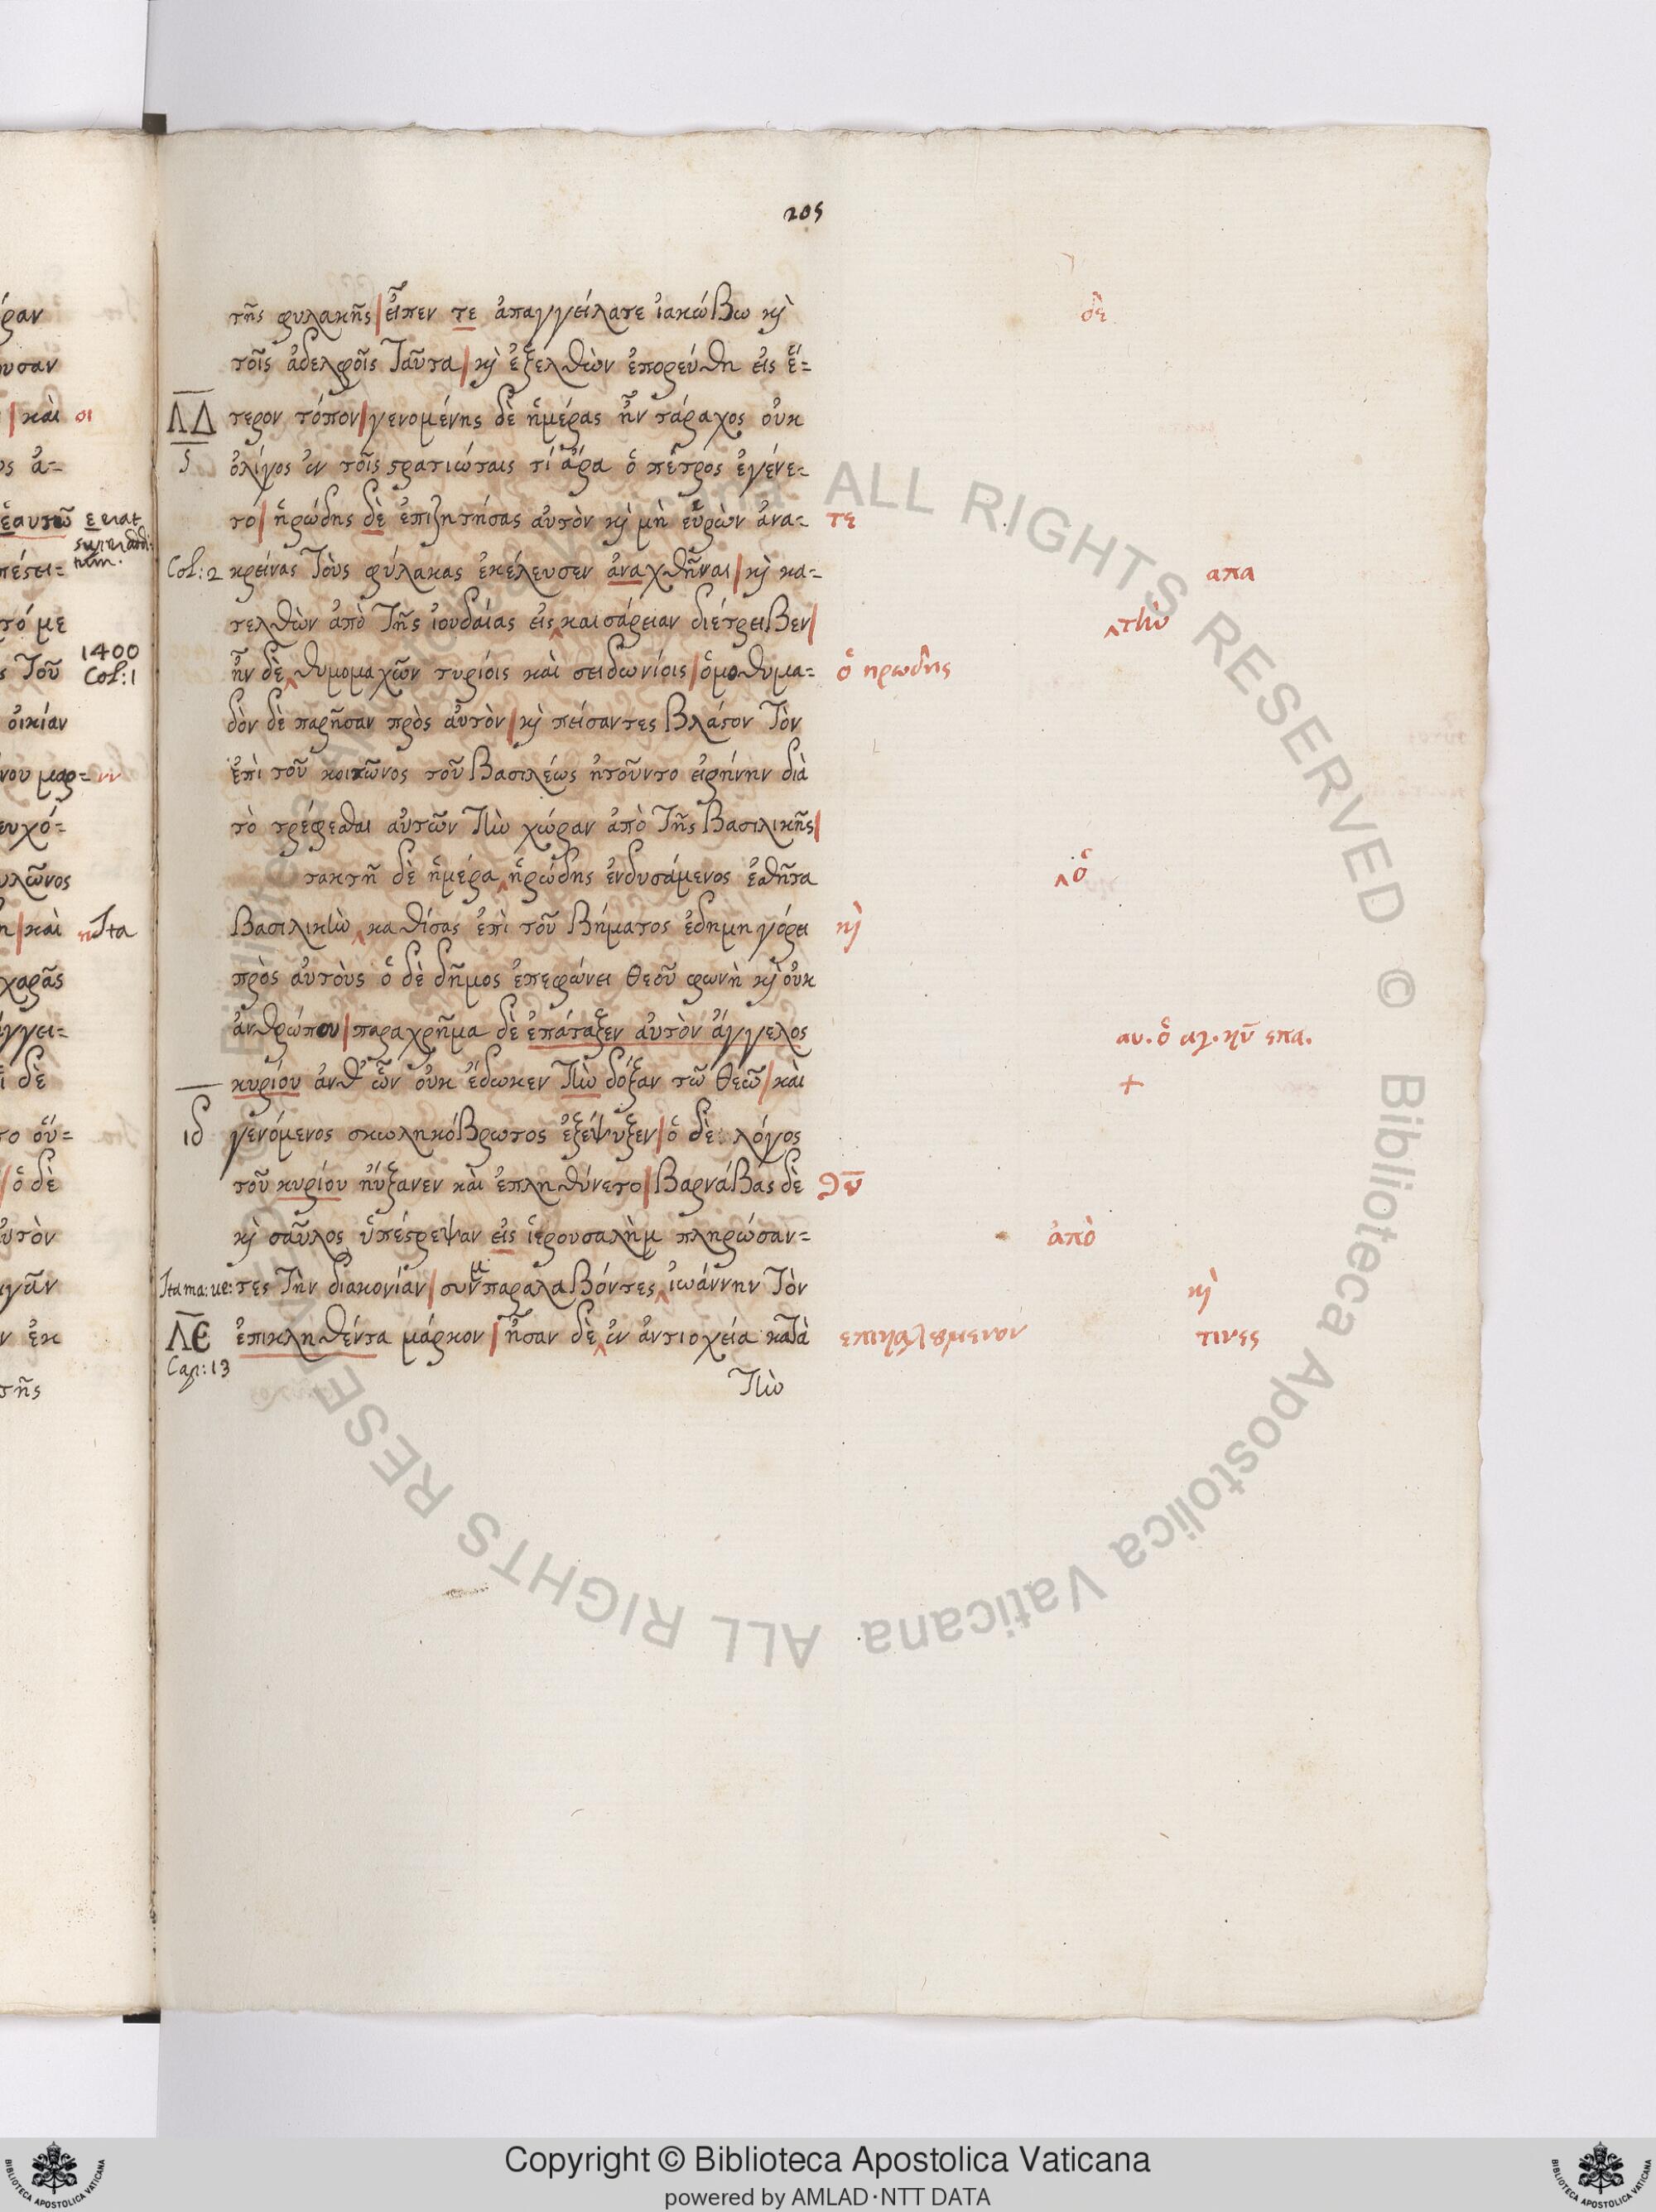 205
τῆς φυλακῆς| εἶπεν τε ἀπαγγείλατε ἰακώβω κỳ δὲ
τοῖς ἀδελφοῖς ταῦτα| κỳ ἐξελθὼν ἐπορεύθη εἰς ἕ=
ΛΔ τερον τόπον| γενομένης δὲ ἡμέρας ἦν τάραχος οὐκ
ὀλίγος ἐν τοῖς στρατιώταις τί ἄρα ὁ πέτρος ἐγένε=
το| ἡρώδης δὲ ἐπιζητήσας αὐτὸν κỳ μὴ εὑρὼν ἀνα= τε
Col:2 κρείνας τοὺς φύλακας ἐκέλευσεν ἀναχθῆναι| κỳ κα= απα
τελθὼν ἀπὸ τῆς ἰουδαίας εἰς ‸ καισάρειαν διέτρειβεν| ‸ τὴν
ἦν δὲ ‸ θυμομαχῶν τυρίοις καὶ σειδωνίοις| ὁμοθυμα= ὁ ηρωδης
δὸν δὲ παρῆσαν πρὸς αὐτὸν| κỳ πείσαντες βλάστον τὸν
ἐπὶ τοῦ κοιτῶνος τοῦ βασιλέως ἠτοῦντο εἰρήνην διὰ
τὸ τρέφεσθαι αὐτῶν τὴν χώραν ἀπὸ τῆς βασιλικῆς|
τακτῆ δὲ ἡμέρα ‸ ἡρώδης ἐνδυσάμενος ἐσθῆτα ‸ ὁ
βασιλικὴν ‸ καθίσας ἐπὶ τοῦ βήματος ἐδημηγόρει κỳ
πρὸς αὐτοὺς ὁ δὲ δῆμος ἐπεφώνει θεοῦ φωνὴ κỳ οὐκ
ἀνθρώπου| παραχρῆμα δὲ ἐπάταξεν αὐτὸν ἄγγελος αυ. ὁ αγ. κῡ επα.
κυρίου ἀνθ' ὧν οὐκ ἔδωκεν τὴν δόξαν τῶ θεῶ| καὶ +
ιδ γενόμενος σκωληκόβρωτος ἐξέψυξεν| ὁ δὲ: λόγος
τοῦ κυρίου ηὔξανεν καὶ ἐπληθύνετο| βαρνάβας δὲ θῡ
κỳ σαῦλος ὑπέστρεψαν εἰς ἱερουσαλὴμ πληρώσαν= ἀπὸ
Ita ma:ve: τες τὴν διακονίαν| συνπαραλαβόντες ‸ ἰωάννην τὸν κỳ
ΛΕ ἐπικληθέντα μάρκον| ἦσαν δὲ ‸ ἐν ἀντιοχεία κατὰ επικαλουμενον τινες
Cap:13
τὴν
ραν
υσαν
| καὶ οι
ος ἀ=
ἑαυτῶ
πέσει=
τό με
1400
τοῦ Col:1
οἰκίαν
νου μαρ=
ευχό=
υλῶνος
η| καὶ Ita
χαρᾶς
γγει=
δὲ
το οὕ=
| ὁ δὲ
υτὸν
γᾶν
ν ἐκ
τῆς
ALL RIGHTS RESERVED © Biblioteca Apostolica Vaticana
Copyright © Biblioteca Apostolica Vaticana
powered by AMLAD·NTT DATA
BIBLIOTECA APOSTOLICA VATICANA
BIBLIOTECA APOSTOLICA VATICANA